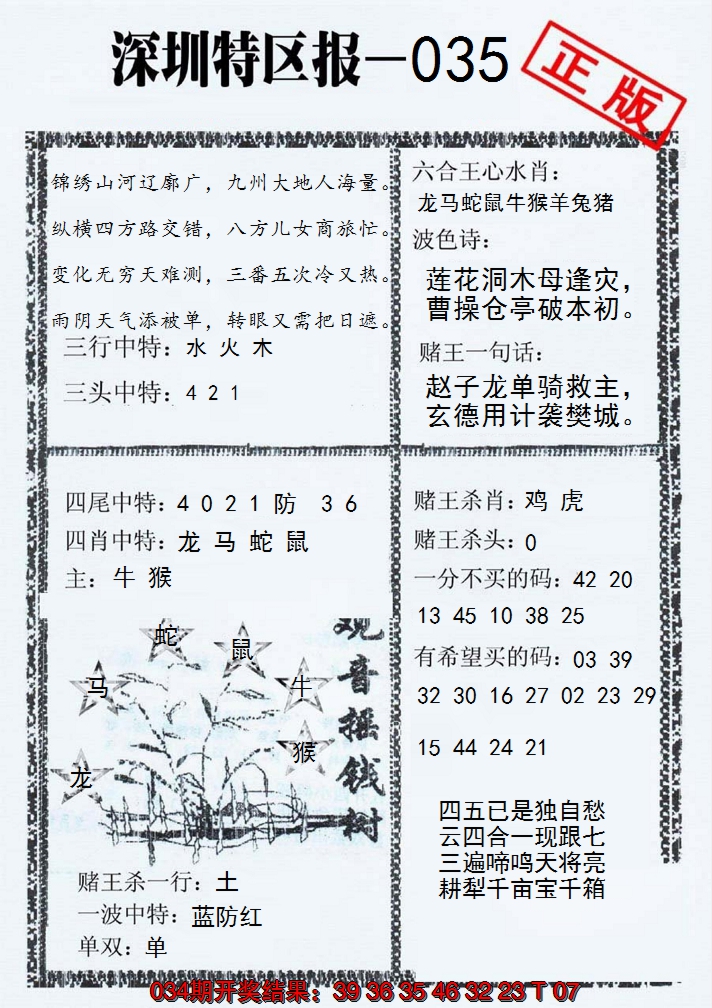 深圳特区报—035
正版
锦绣山河辽廓广，九州大地人海量。
纵横四方路交错，八方儿女商旅忙。
变化无穷天难测，三番五次冷又热。
雨阴天气添被单，转眼又需把日遮。
三行中特：水 火 木
三头中特：4 2 1
六合王心水肖：
龙马蛇鼠牛猴羊兔猪
波色诗：
莲花洞木母逢灾，
曹操仓亭破本初。
赌王一句话：
赵子龙单骑救主，
玄德用计袭樊城。
四尾中特：4 0 2 1 防 3 6
四肖中特：龙 马 蛇 鼠
主：牛 猴
蛇
鼠
马
牛
猴
龙
观音摇钱树
赌王杀一行：土
一波中特：蓝防红
单双：单
赌王杀肖：鸡 虎
赌王杀头：0
一分不买的码：42 20
13 45 10 38 25
有希望买的码：03 39
32 30 16 27 02 23 29
15 44 24 21
四五已是独自愁
云四合一现跟七
三遍啼鸣天将亮
耕犁千亩宝千箱
034期开奖结果：39 36 35 46 32 23 T 07